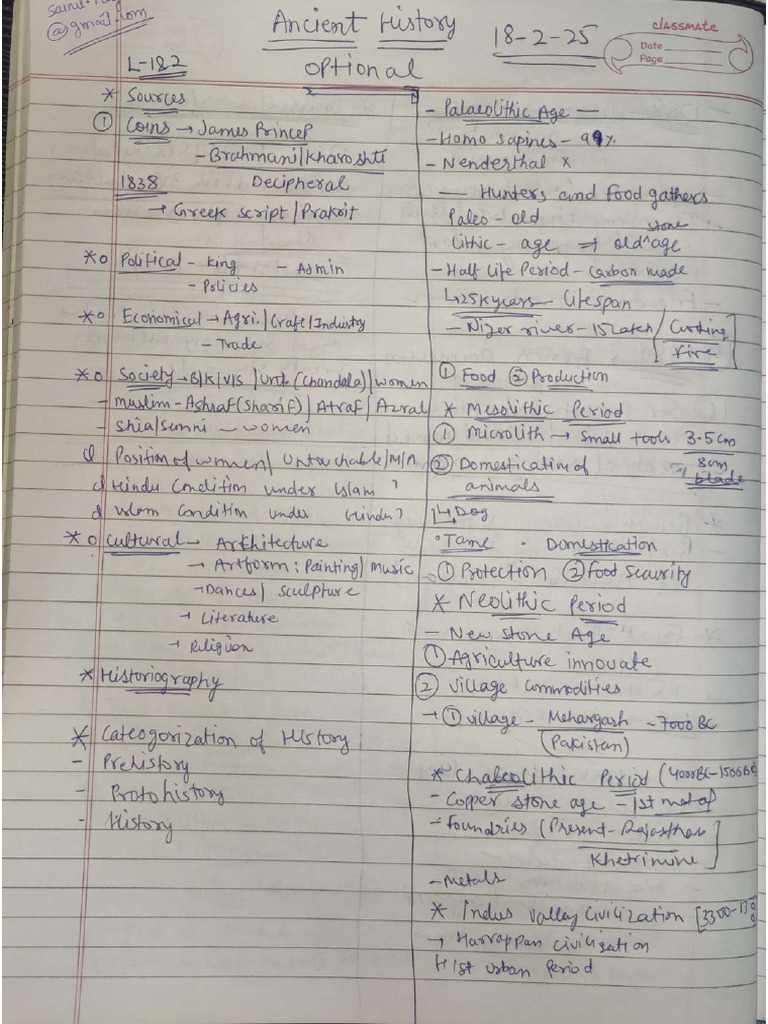 @gmail.com
Ancient History
Optional
18-2-25
classmate
Date
Page
L-1&2
* Sources
① Coins → James Princep
- Brahmani/Kharoshti
1838 Decipheral
→ Greek script/Prakrit
*o Political - King - Admin
- Policies
*o Economical → Agri./Craft/Industry
- Trade
*o Society → B/K/V/S / Unt. (Chandala)/women
- Muslim - Ashraf (Sharif)/Atraf/Azral
- Shia/Sunni - women
Position of women/ Untouchable/M/M
Hindu Condition under Islam?
Islam Condition under Hindu?
*o Cultural → Arkhitecture
→ Artform: Painting/music
→ Dances/ sculpture
→ Literature
→ Religion
* Historiography
* Cateogorization of History
- Prehistory
- Protohistory
- History
- Palaeolithic Age -
- Homo sapines - 99%
- Nenderthal x
- Hunters and Food gathers
Paleo - old
Lithic - age ⇒ old^stone age
- Half life Period - Carbon made
↳ 25K years - Lifespan
- Nizer river - 15 Laten/ [Cutking
Fire]
① Food ② Production
* Mesolithic Period
① Microlith → Small tools 3-5cm
② Domestication of 8cm
animals blade
↳ Dog
• Tame • Domestication
① Protection ② Food Scaurity
* Neolithic Period
- New stone Age
① Agriculture innovate
② Village Commodities
→ ① Village - Mehargash - 7000 BC
(Pakistan)
* Chalcolithic Period (4000BC-1500BC)
- Copper stone age - 1st metal
- Foundries (Present - Rajasthan
Khetrimine]
- Metals
* Indus Valley Civilization [3300-130
→ Harrappan civilization
H1st urban Period